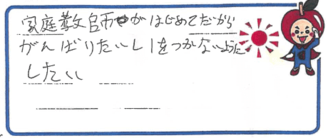 家庭教師がはじめてだから
がんばりたいし1をつかないように
したい